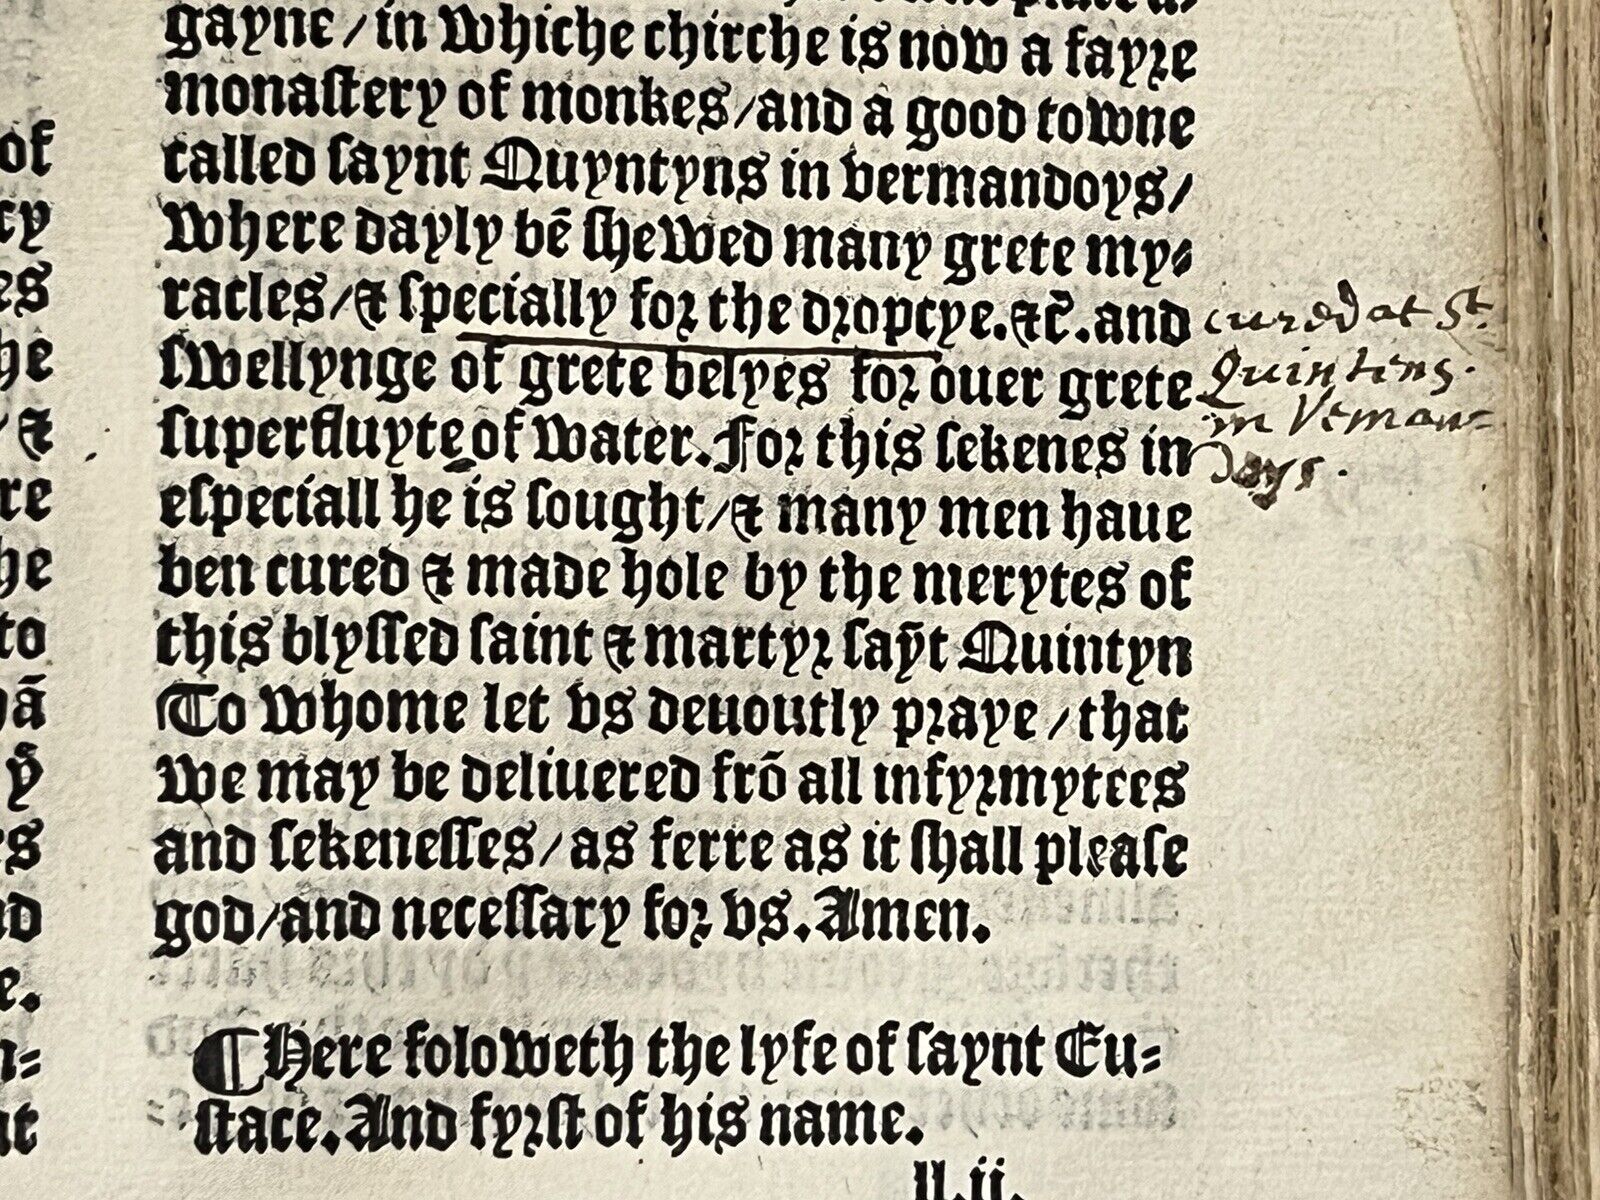 of
cy
es
he
/ &
re
he
to
yā
es
nd
e.
n=
nt
gayne / in whiche chirche is now a fayre
monastery of monkes / and a good towne
called saynt Quyntyns in vermandoys /
where dayly bē shewed many grete my=
racles / & specially for the dropcye. &c̄. and
swellynge of grete belyes for ouer grete
superfluyte of water. For this sekenes in
especiall he is sought / & many men haue
ben cured & made hole by the merytes of
this blyssed saint & martyr saȳt Quintyn
To whome let vs deuoutly praye / that
we may be deliuered frō all infyrmytees
and sekenesses / as ferre as it shall please
god / and necessary for vs. Amen.
¶ Here foloweth the lyfe of saynt Eu=
stace. And fyrst of his name.
ll.ii.
cured at St.
Quintins.
in Veman=
days.